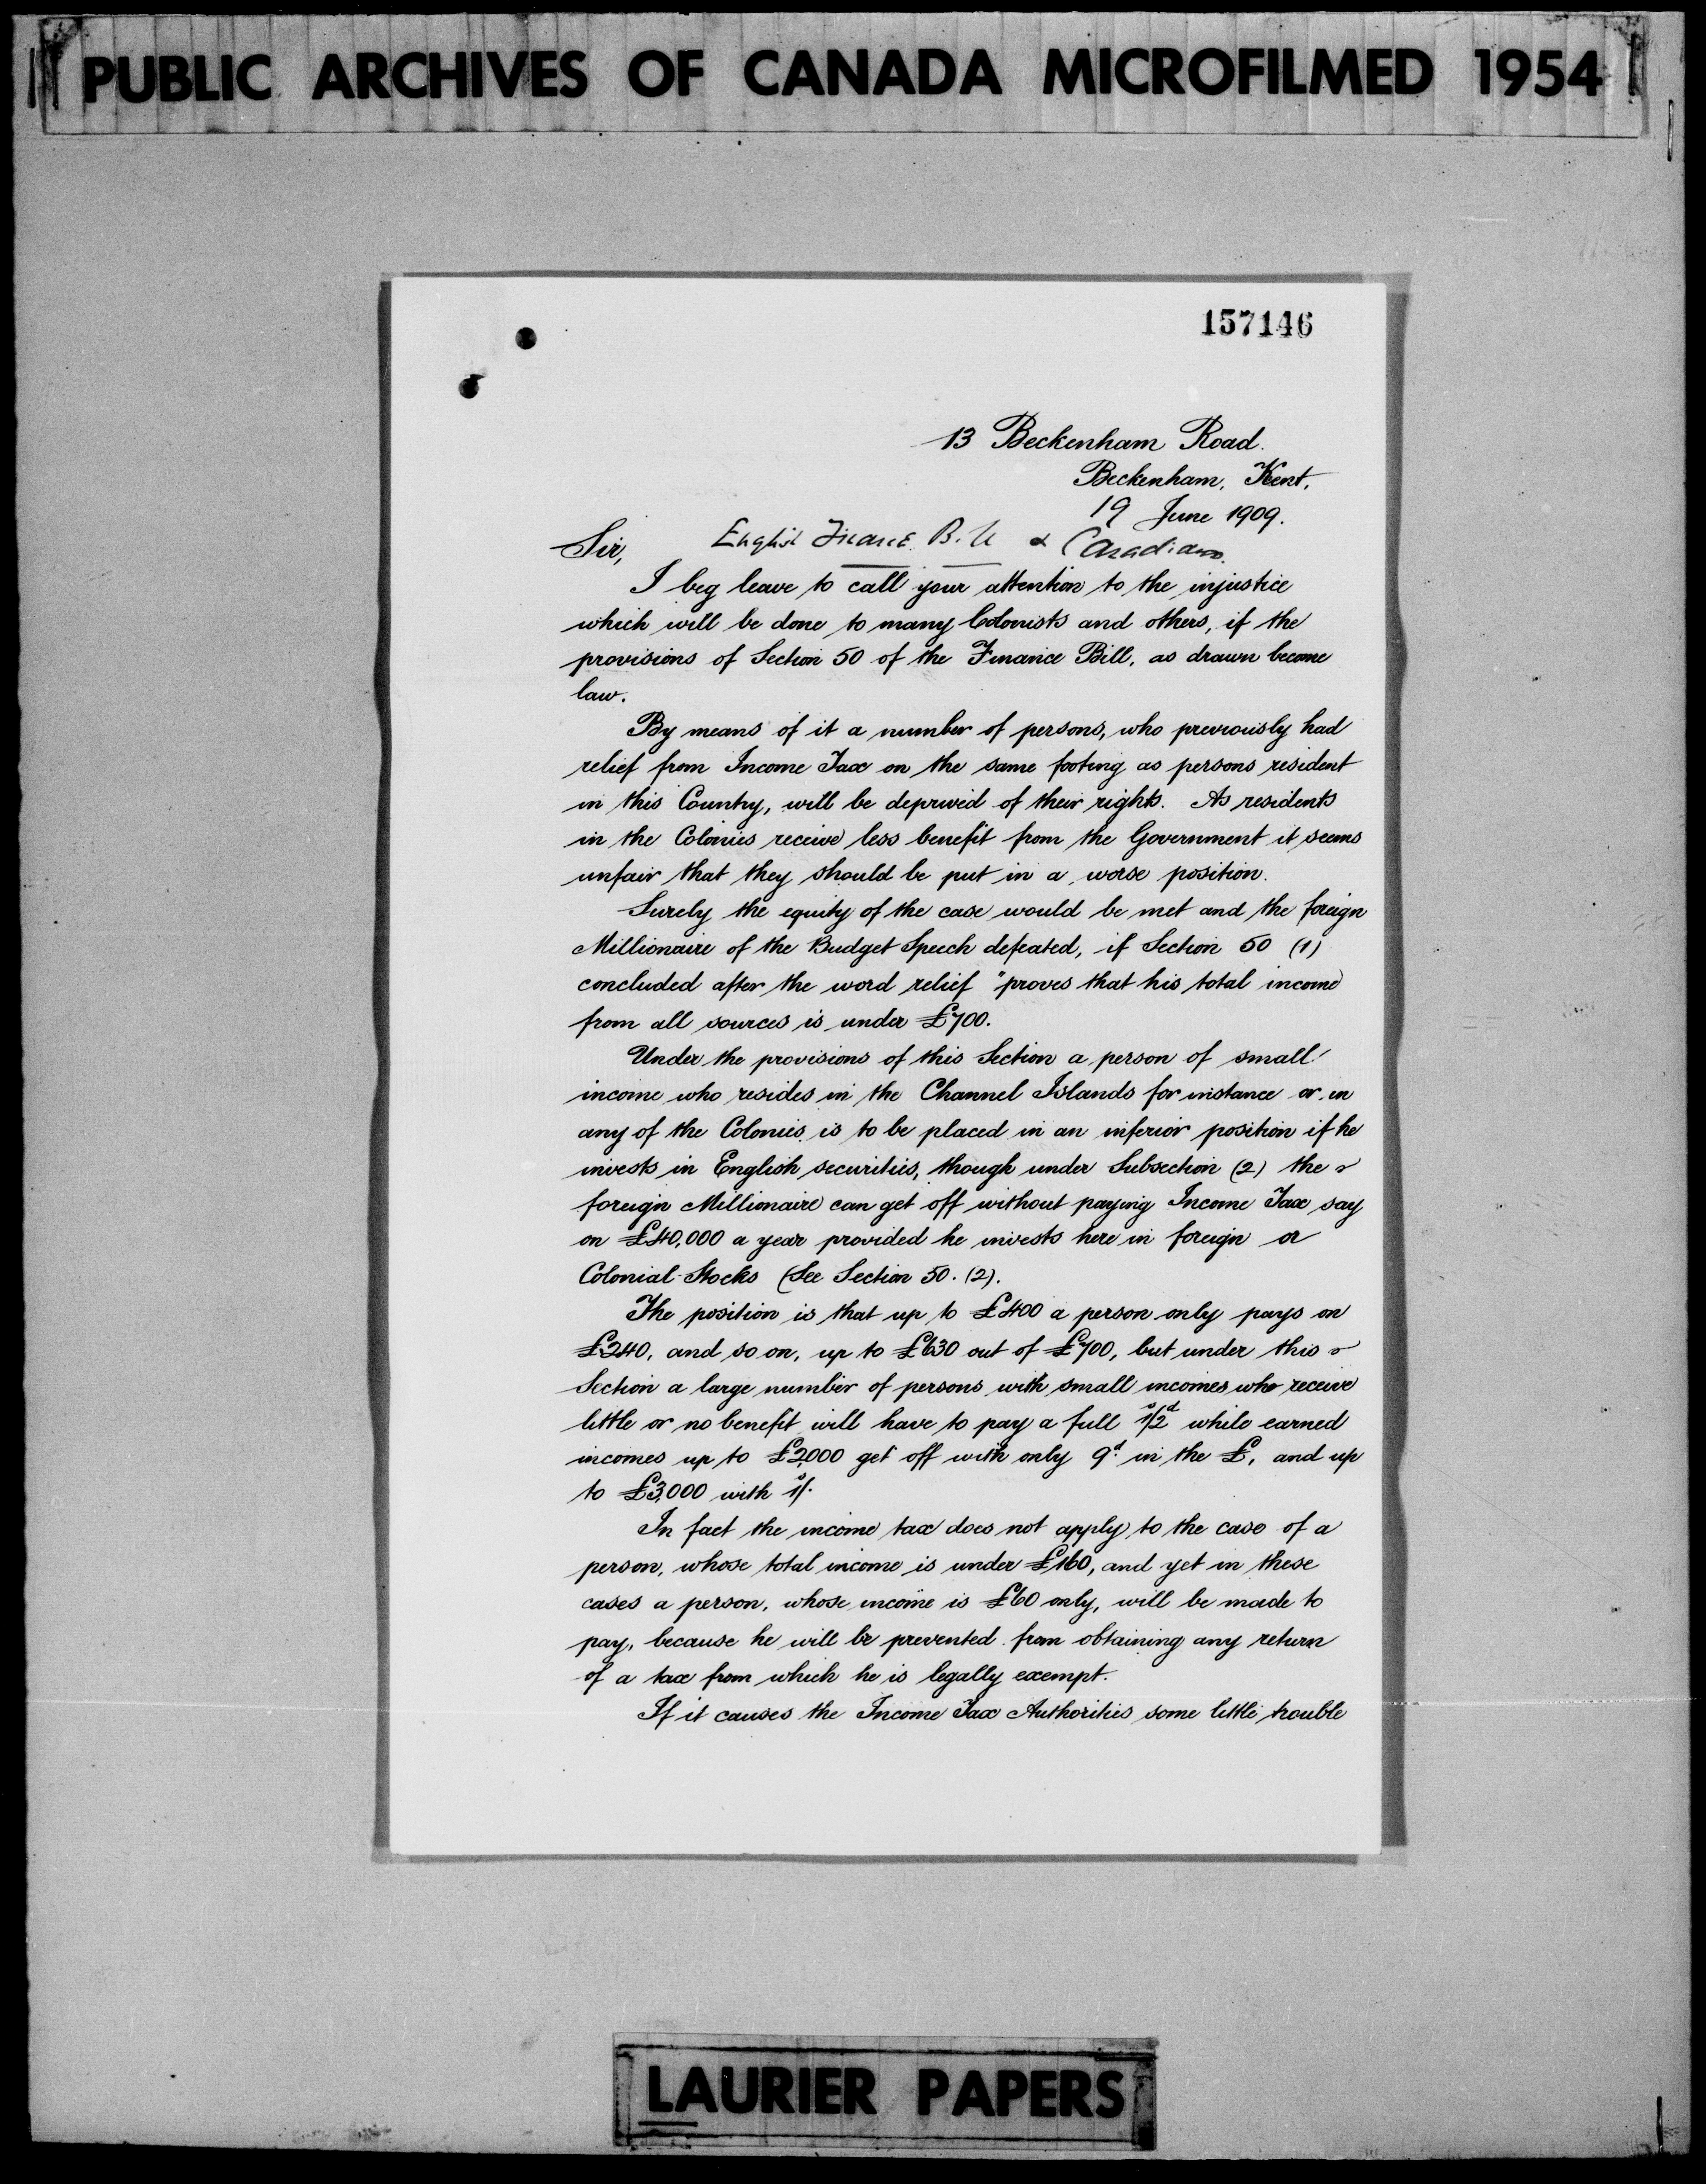 PUBLIC ARCHIVES OF CANADA MICROFILMED 1954
157146
13 Beckenham Road.
Beckenham, Kent.
19 June 1909.
English Finance Bill & Canadians.
Sir,
I beg leave to call your attention to the injustice
which will be done to many Colonists and others, if the
provisions of Section 50 of the Finance Bill, as drawn become
law.
By means of it a number of persons, who previously had
relief from Income Tax on the same footing as persons resident
in this Country, will be deprived of their rights. As residents
in the Colonies receive less benefit from the Government it seems
unfair that they should be put in a worse position.
Surely the equity of the case would be met and the foreign
Millionaire of the Budget Speech defeated, if Section 50 (1)
concluded after the word relief "proves that his total income
from all sources is under £700.
Under the provisions of this Section a person of small
income who resides in the Channel Islands for instance or in
any of the Colonies is to be placed in an inferior position if he
invests in English securities, though under Subsection (2) the
foreign Millionaire can get off without paying Income Tax say
on £40,000 a year provided he invests here in foreign or
Colonial Stocks (See Section 50. (2).
The position is that up to £400 a person only pays on
£240, and so on, up to £630 out of £700, but under this
Section a large number of persons with small incomes who receive
little or no benefit will have to pay a full 1s/2d while earned
incomes up to £2,000 get off with only 9d. in the £, and up
to £3,000 with 1s/.
In fact the income tax does not apply to the case of a
person, whose total income is under £160, and yet in these
cases a person, whose income is £60 only, will be made to
pay, because he will be prevented from obtaining any return
of a tax from which he is legally exempt.
If it causes the Income Tax Authorities some little trouble
LAURIER PAPERS